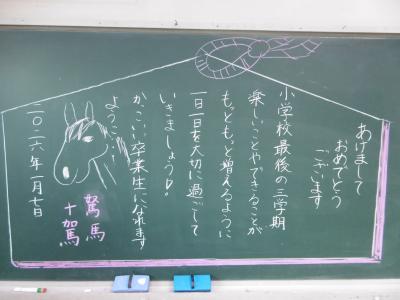 あけまして
おめでとう
ございます
小学校最後の三学期
楽しいことやできることが
もっともっと増えるように
一日一日を大切に過ごして
いきましょう!
かっこいい卒業生になれます
ように…!
駑馬
十駕
二〇二六年一月七日